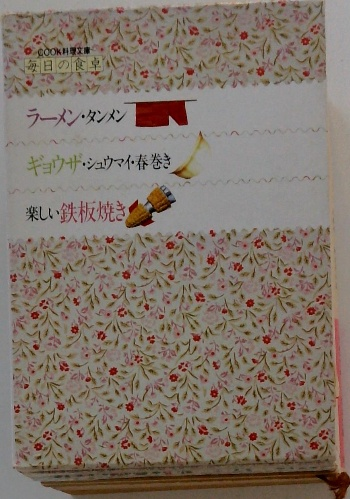 COOK料理文庫
毎日の食卓
ラーメン・タンメン
ギョウザ・シュウマイ・春巻き
楽しい鉄板焼き